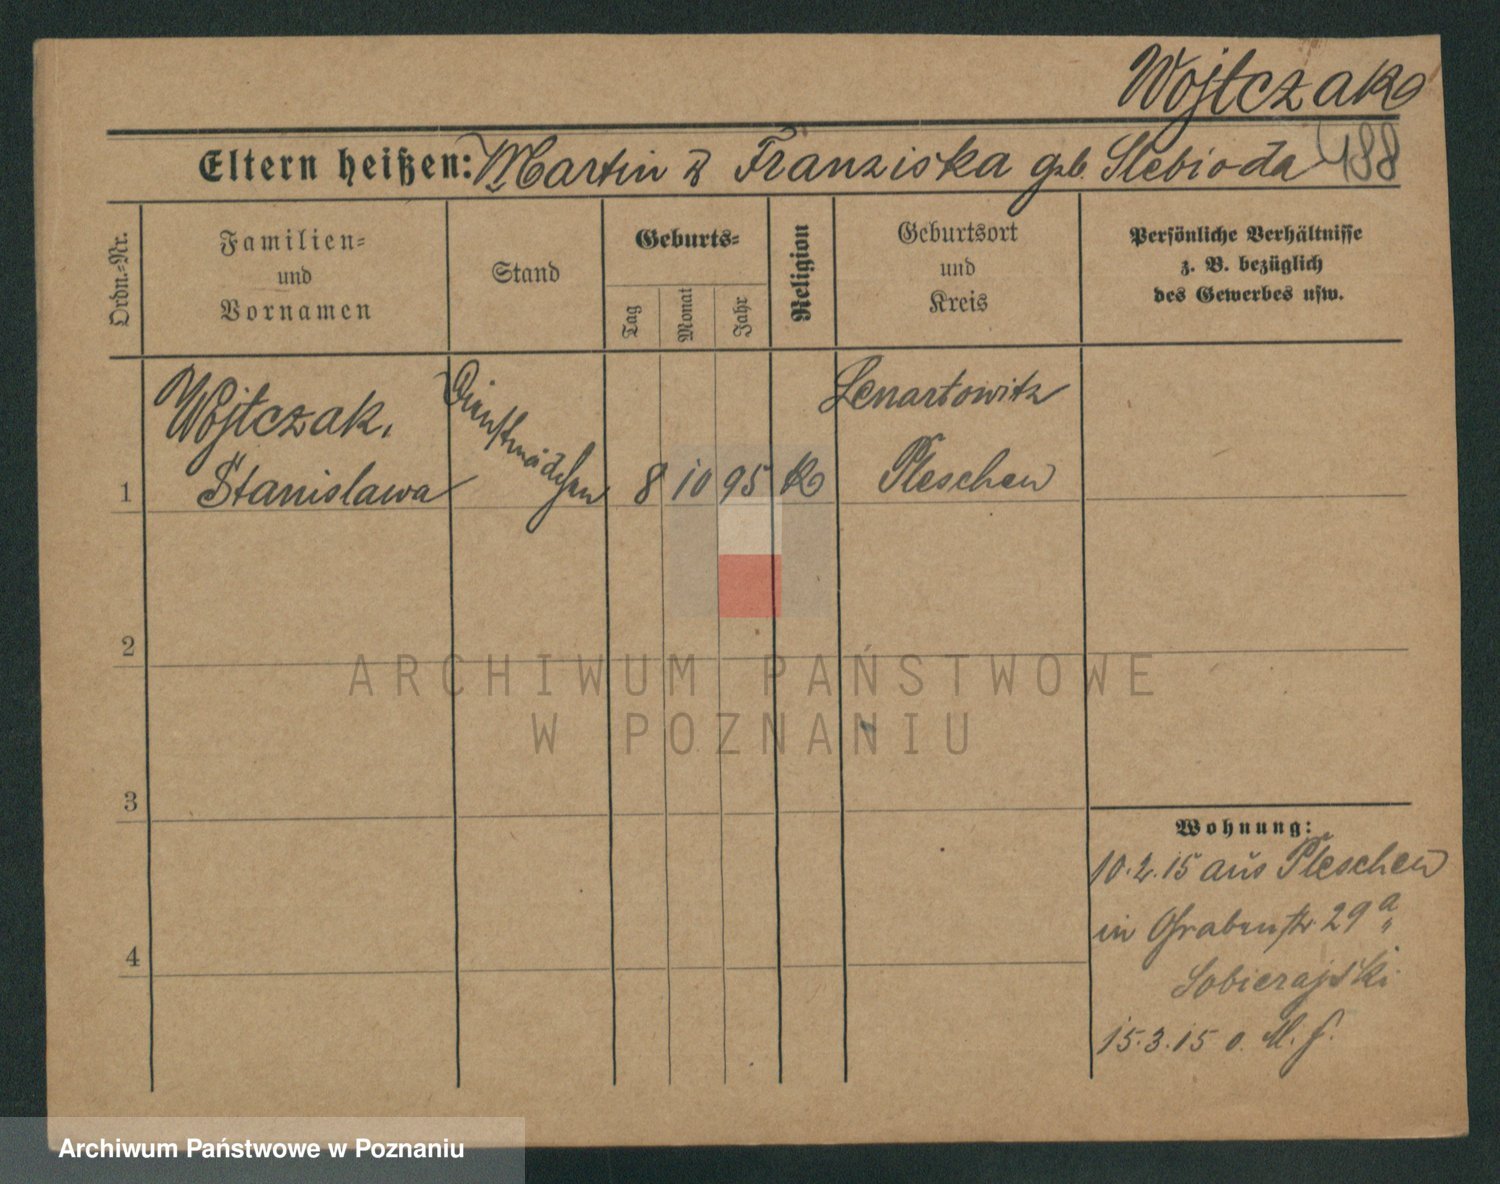 Wojtczak
Eltern heißen: Martin u Franziska geb. Slebioda 488
Ordn.-Nr.
Familien-
und
Vornamen
Stand
Geburts-
Tag
Monat
Jahr
Religion
Geburtsort
und
Kreis
Persönliche Verhältnisse
z. B. bezüglich
des Gewerbes usw.
1
Wojtczak,
Stanislawa
Dienstmädchen
8 10 95 K
Lenartowitz
Pleschen
2
ARCHIWUM PAŃSTWOWE
W POZNANIU
3
4
Wohnung:
10.2.15 aus Pleschen
in Grabenstr 29 a
Sobierajski
15.3.15 o.
Archiwum Państwowe w Poznaniu